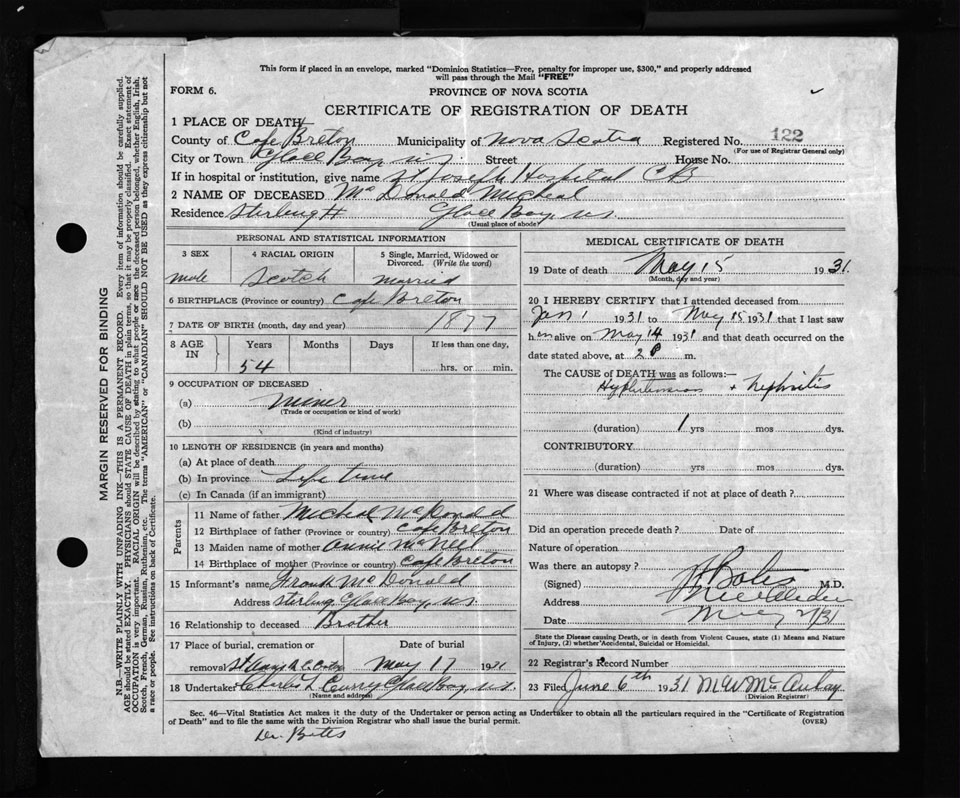 This form if placed in an envelope, marked "Dominion Statistics—Free, penalty for improper use, $300," and properly addressed
will pass through the Mail "FREE"
FORM 6.
PROVINCE OF NOVA SCOTIA
CERTIFICATE OF REGISTRATION OF DEATH
1 PLACE OF DEATH
County of Cape Breton Municipality of Nova Scotia Registered No. 122
(For use of Registrar General only)
City or Town Glace Bay, N.S. Street House No.
If in hospital or institution, give name St Joseph Hospital C B
2 NAME OF DECEASED McDonald Micheal
Residence Sterling Glace Bay, N.S.
(Usual place of abode)
PERSONAL AND STATISTICAL INFORMATION
3 SEX 4 RACIAL ORIGIN 5 Single, Married, Widowed or
Divorced. (Write the word)
male Scotch married
6 BIRTHPLACE (Province or country) Cape Breton
7 DATE OF BIRTH (month, day and year) 1877
8 AGE IN Years Months Days If less than one day,
54 hrs. or min.
9 OCCUPATION OF DECEASED
(a) Miner
(Trade or occupation or kind of work)
(b)
(Kind of industry)
10 LENGTH OF RESIDENCE (in years and months)
(a) At place of death
(b) In province Life time
(c) In Canada (if an immigrant)
Parents
11 Name of father Micheal McDonald
12 Birthplace of father (Province or country) Cape Breton
13 Maiden name of mother Annie McNeil
14 Birthplace of mother (Province or country) Cape Breton
15 Informant's name Frank McDonald
Address Sterling Glace Bay, N.S.
16 Relationship to deceased Brother
17 Place of burial, cremation or Date of burial
removal St May 17 1931
18 Undertaker Charles L Curry Glace Bay, N.S.
(Name and address)
MEDICAL CERTIFICATE OF DEATH
19 Date of death May 15 1931.
(Month, day and year)
20 I HEREBY CERTIFY that I attended deceased from
Jan 1 1931 to May 15 1931 that I last saw
him alive on May 14 1931 and that death occurred on the
date stated above, at 2 P m.
The CAUSE of DEATH was as follows:—
Hypertension + Nephritis
(duration) 1 yrs mos dys.
CONTRIBUTORY
(duration) yrs mos dys.
21 Where was disease contracted if not at place of death?
Did an operation precede death? Date of
Nature of operation
Was there an autopsy?
(Signed) Bates M.D.
Address
Date
State the Disease causing Death, or in death from Violent Causes, state (1) Means and Nature
of Injury, (2) whether Accidental, Suicidal or Homicidal.
22 Registrar's Record Number
23 Filed June 6th 1931 M W McAulay
(Division Registrar)
Sec. 46—Vital Statistics Act makes it the duty of the Undertaker or person acting as Undertaker to obtain all the particulars required in the "Certificate of Registration
of Death" and to file the same with the Division Registrar who shall issue the burial permit. (OVER)
Dr. Bates
MARGIN RESERVED FOR BINDING
N.B.—WRITE PLAINLY WITH UNFADING INK—THIS IS A PERMANENT RECORD. Every item of information should be carefully supplied.
AGE should be stated EXACTLY. PHYSICIANS should STATE CAUSE OF DEATH in plain terms, so that it may be properly classified. Exact statement of
OCCUPATION is very important. RACIAL ORIGIN will be described by stating to what people or race the deceased person belonged, whether English, Irish,
Scotch, French, German, Russian, Ruthenian, etc. The terms "AMERICAN" or "CANADIAN" SHOULD NOT BE USED as they express citizenship but not
a race or people. See instructions on back of Certificate.